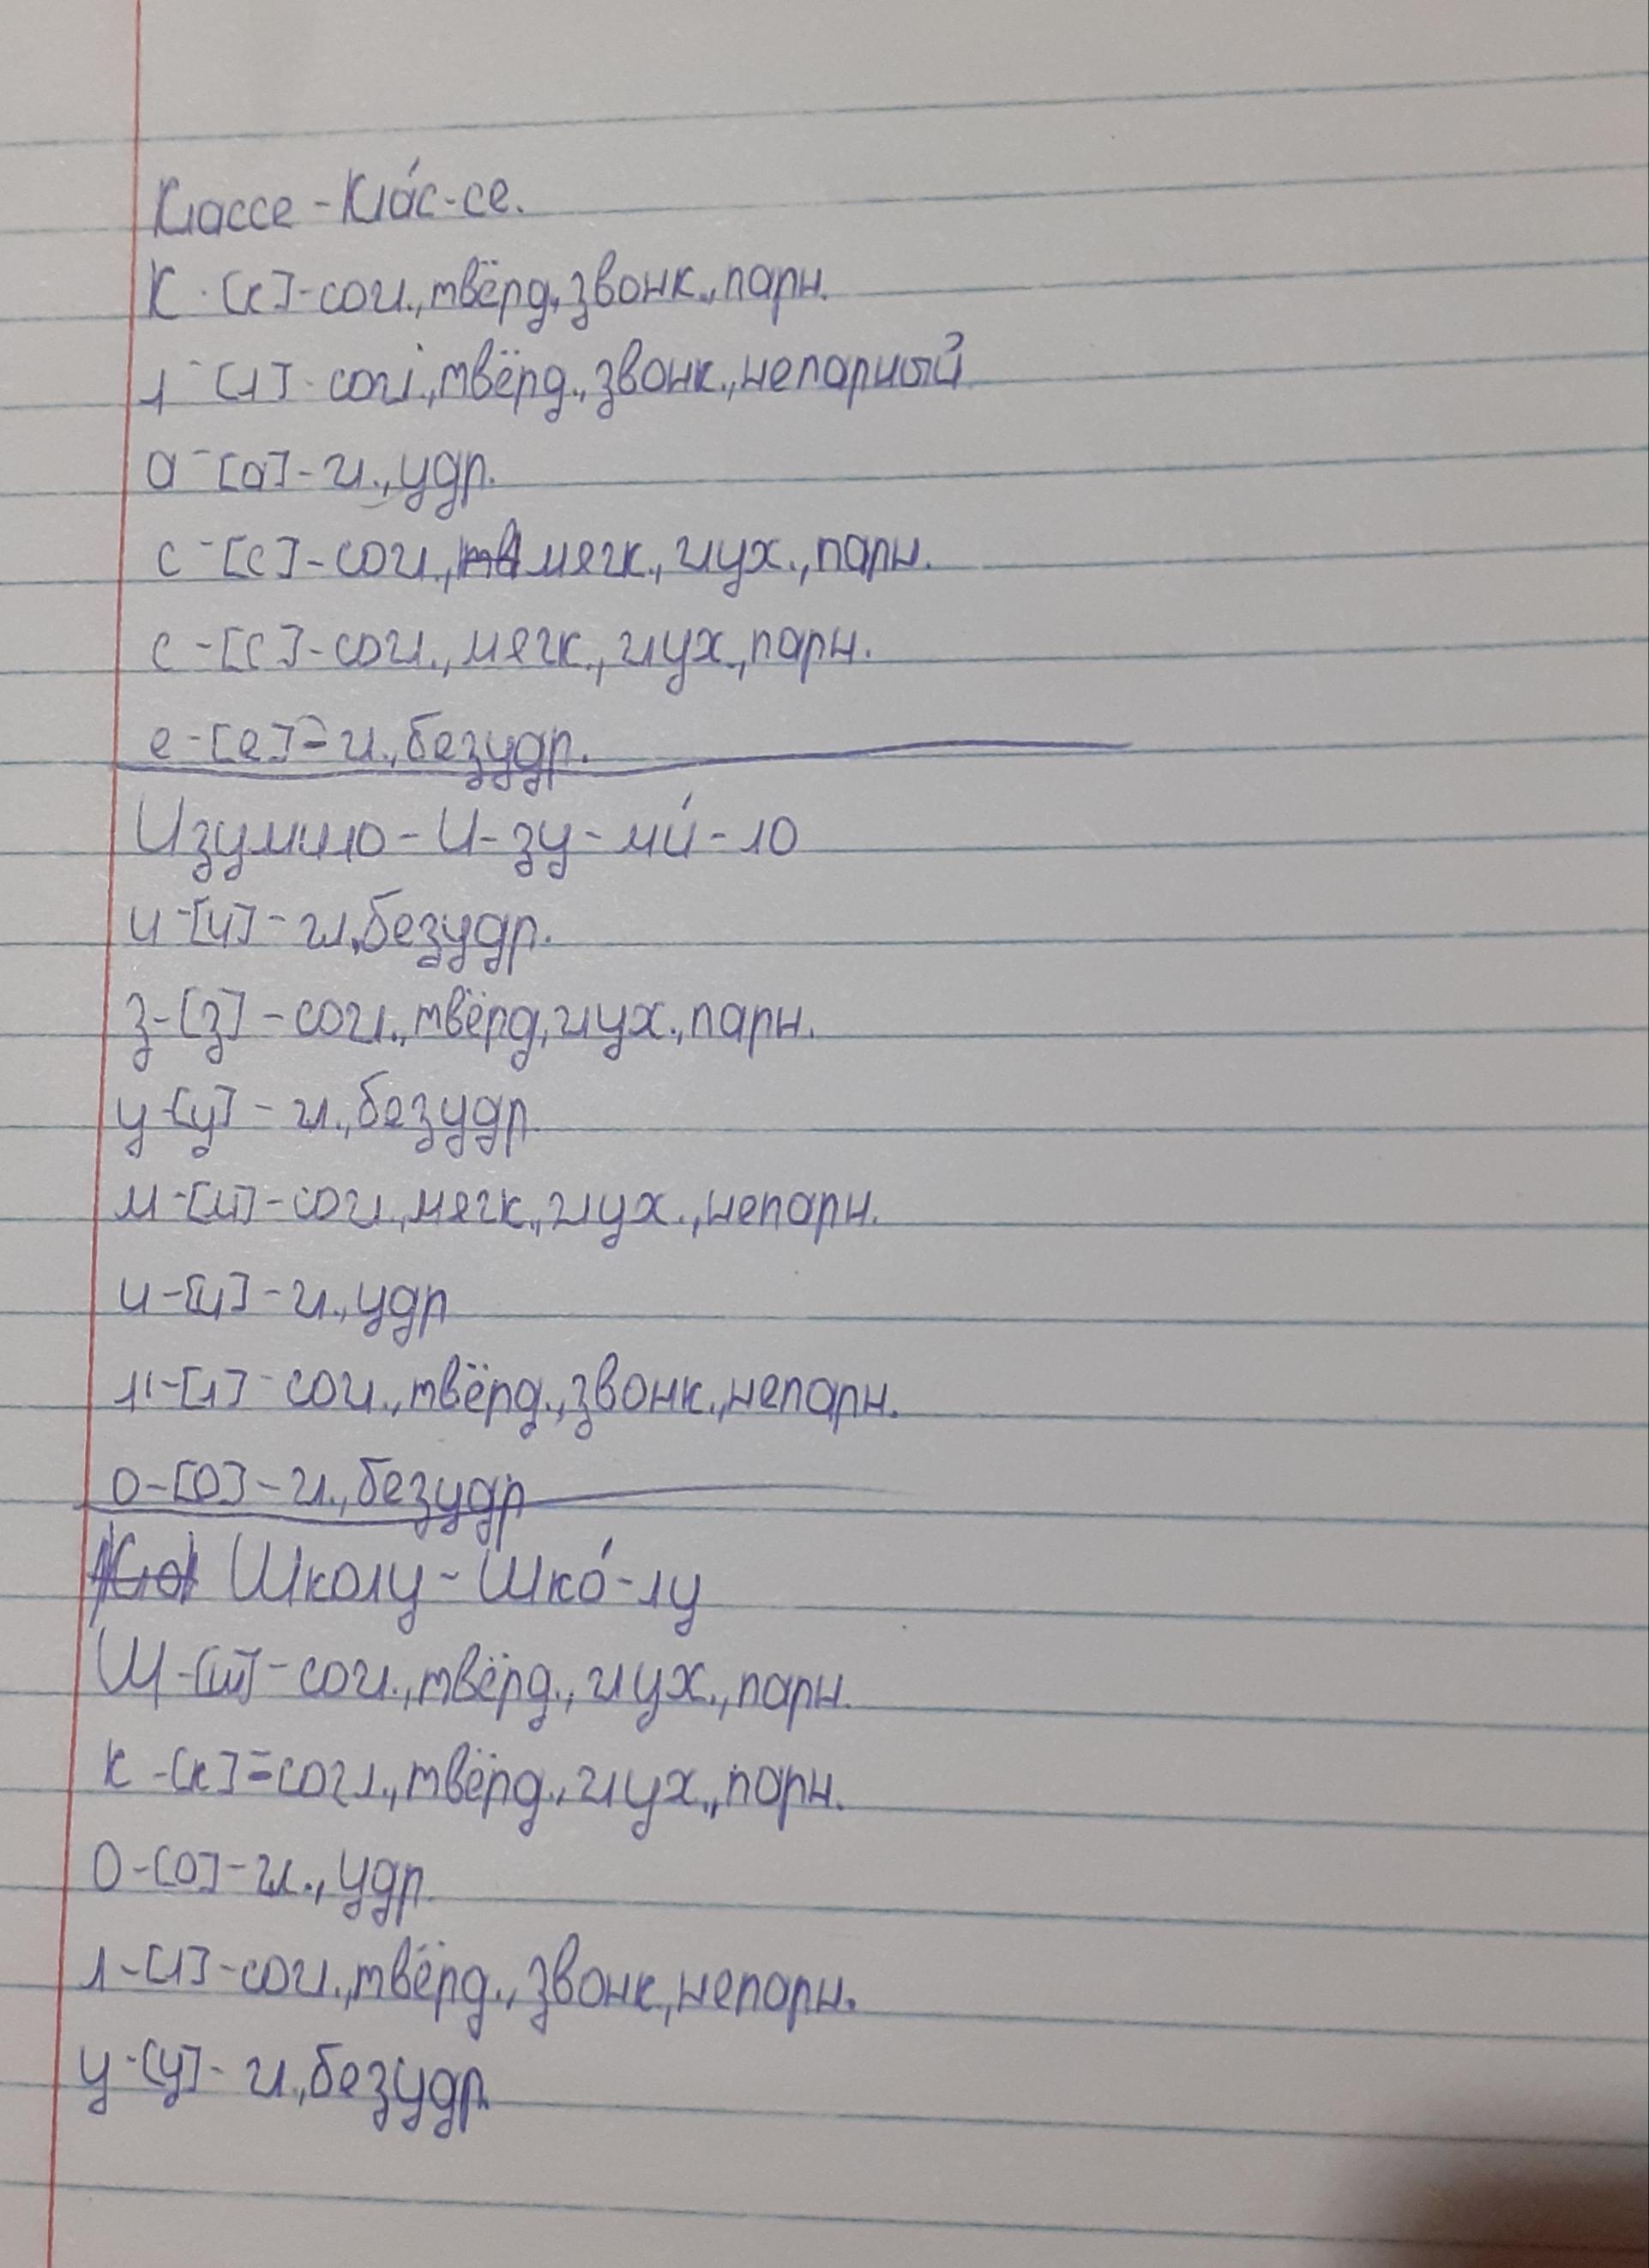 Классе - Кла́с-се.
К - [к] - согл., твёрд., звонк., парн.
л - [л] - согл., твёрд., звонк., непарный
а - [а] - гл., удр.
с - [с] - согл., мягк., глух., парн.
с - [с] - согл., мягк., глух., парн.
е - [е] - гл., безудр.
Изумило - И-зу-ми́-ло
и - [и] - гл., безудр.
з - [з] - согл., твёрд, глух., парн.
у - [у] - гл., безудр
м - [м] - согл, мягк., глух., непарн.
и - [и] - гл., удр
л - [л] - согл., твёрд., звонк., непарн.
о - [о] - гл., безудр
Школу - Шко́-лу
Ш - [ш] - согл., твёрд., глух., парн.
к - [к] = согл., твёрд., глух., парн.
о - [о] - гл., удр.
л - [л] - согл., твёрд., звонк, непарн.
у - [у] - гл., безудр.